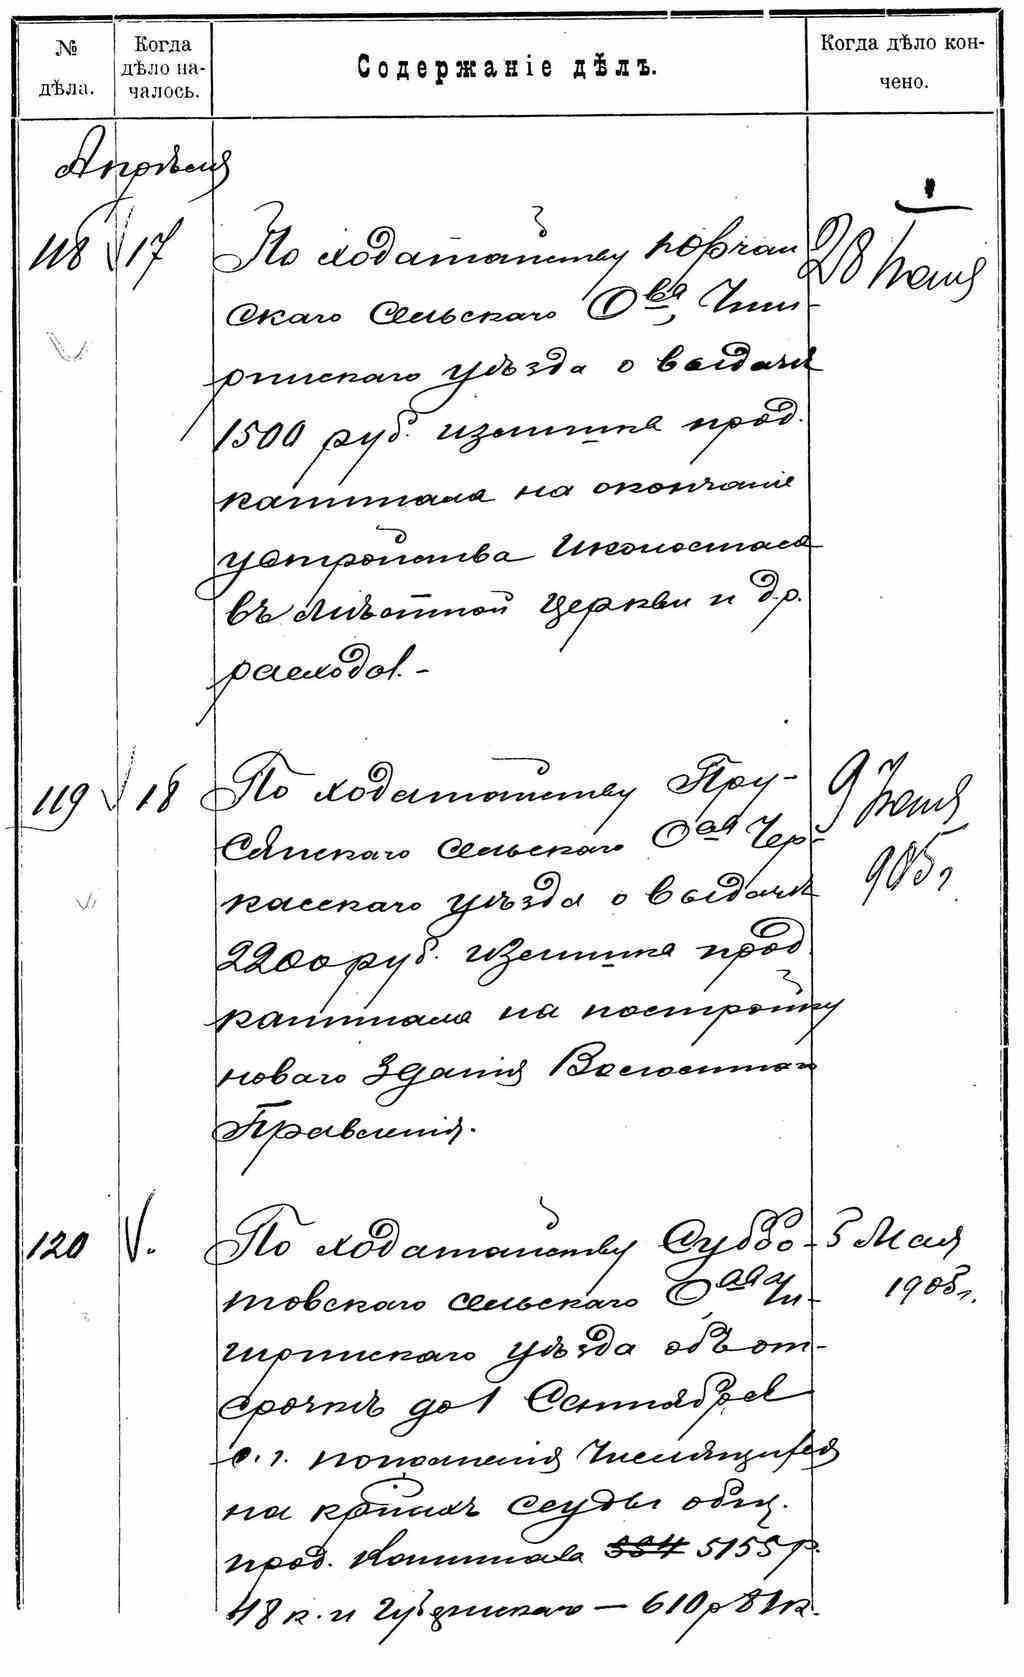 № дѣла.
Когда дѣло на-
чалось.
Содержаніе дѣлъ.
Когда дѣло кон-
чено.
Апрѣля
118 17 По ходатайству
скаго сельскаго О-ва, Чиги-
ринскаго уѣзда о выдачѣ
1500 руб. излишка прод.
капитала на окончаніе
устройства Иконостаса
въ мѣстной церкви и др.
расходов.-
28 Іюня
119 18 По ходатайству Пру-
сянскаго сельскаго О-ва Чер-
касскаго уѣзда о выдачѣ
2200 руб. излишка прод.
капитала на постройку
новаго зданія Волостного
Правленія.
9 Іюня
905 г
120 По ходатайству Суббо-
товскаго сельскаго О-ва Чи-
гиринскаго уѣзда объ от-
срочкѣ до 1 Сентября
с. г. пополненія числящейся
на ссуды общ.
прод. Капитала 334 5155 р.
48 к. и Губернскаго — 610 р 81 к.
5 Мая
1905 г.